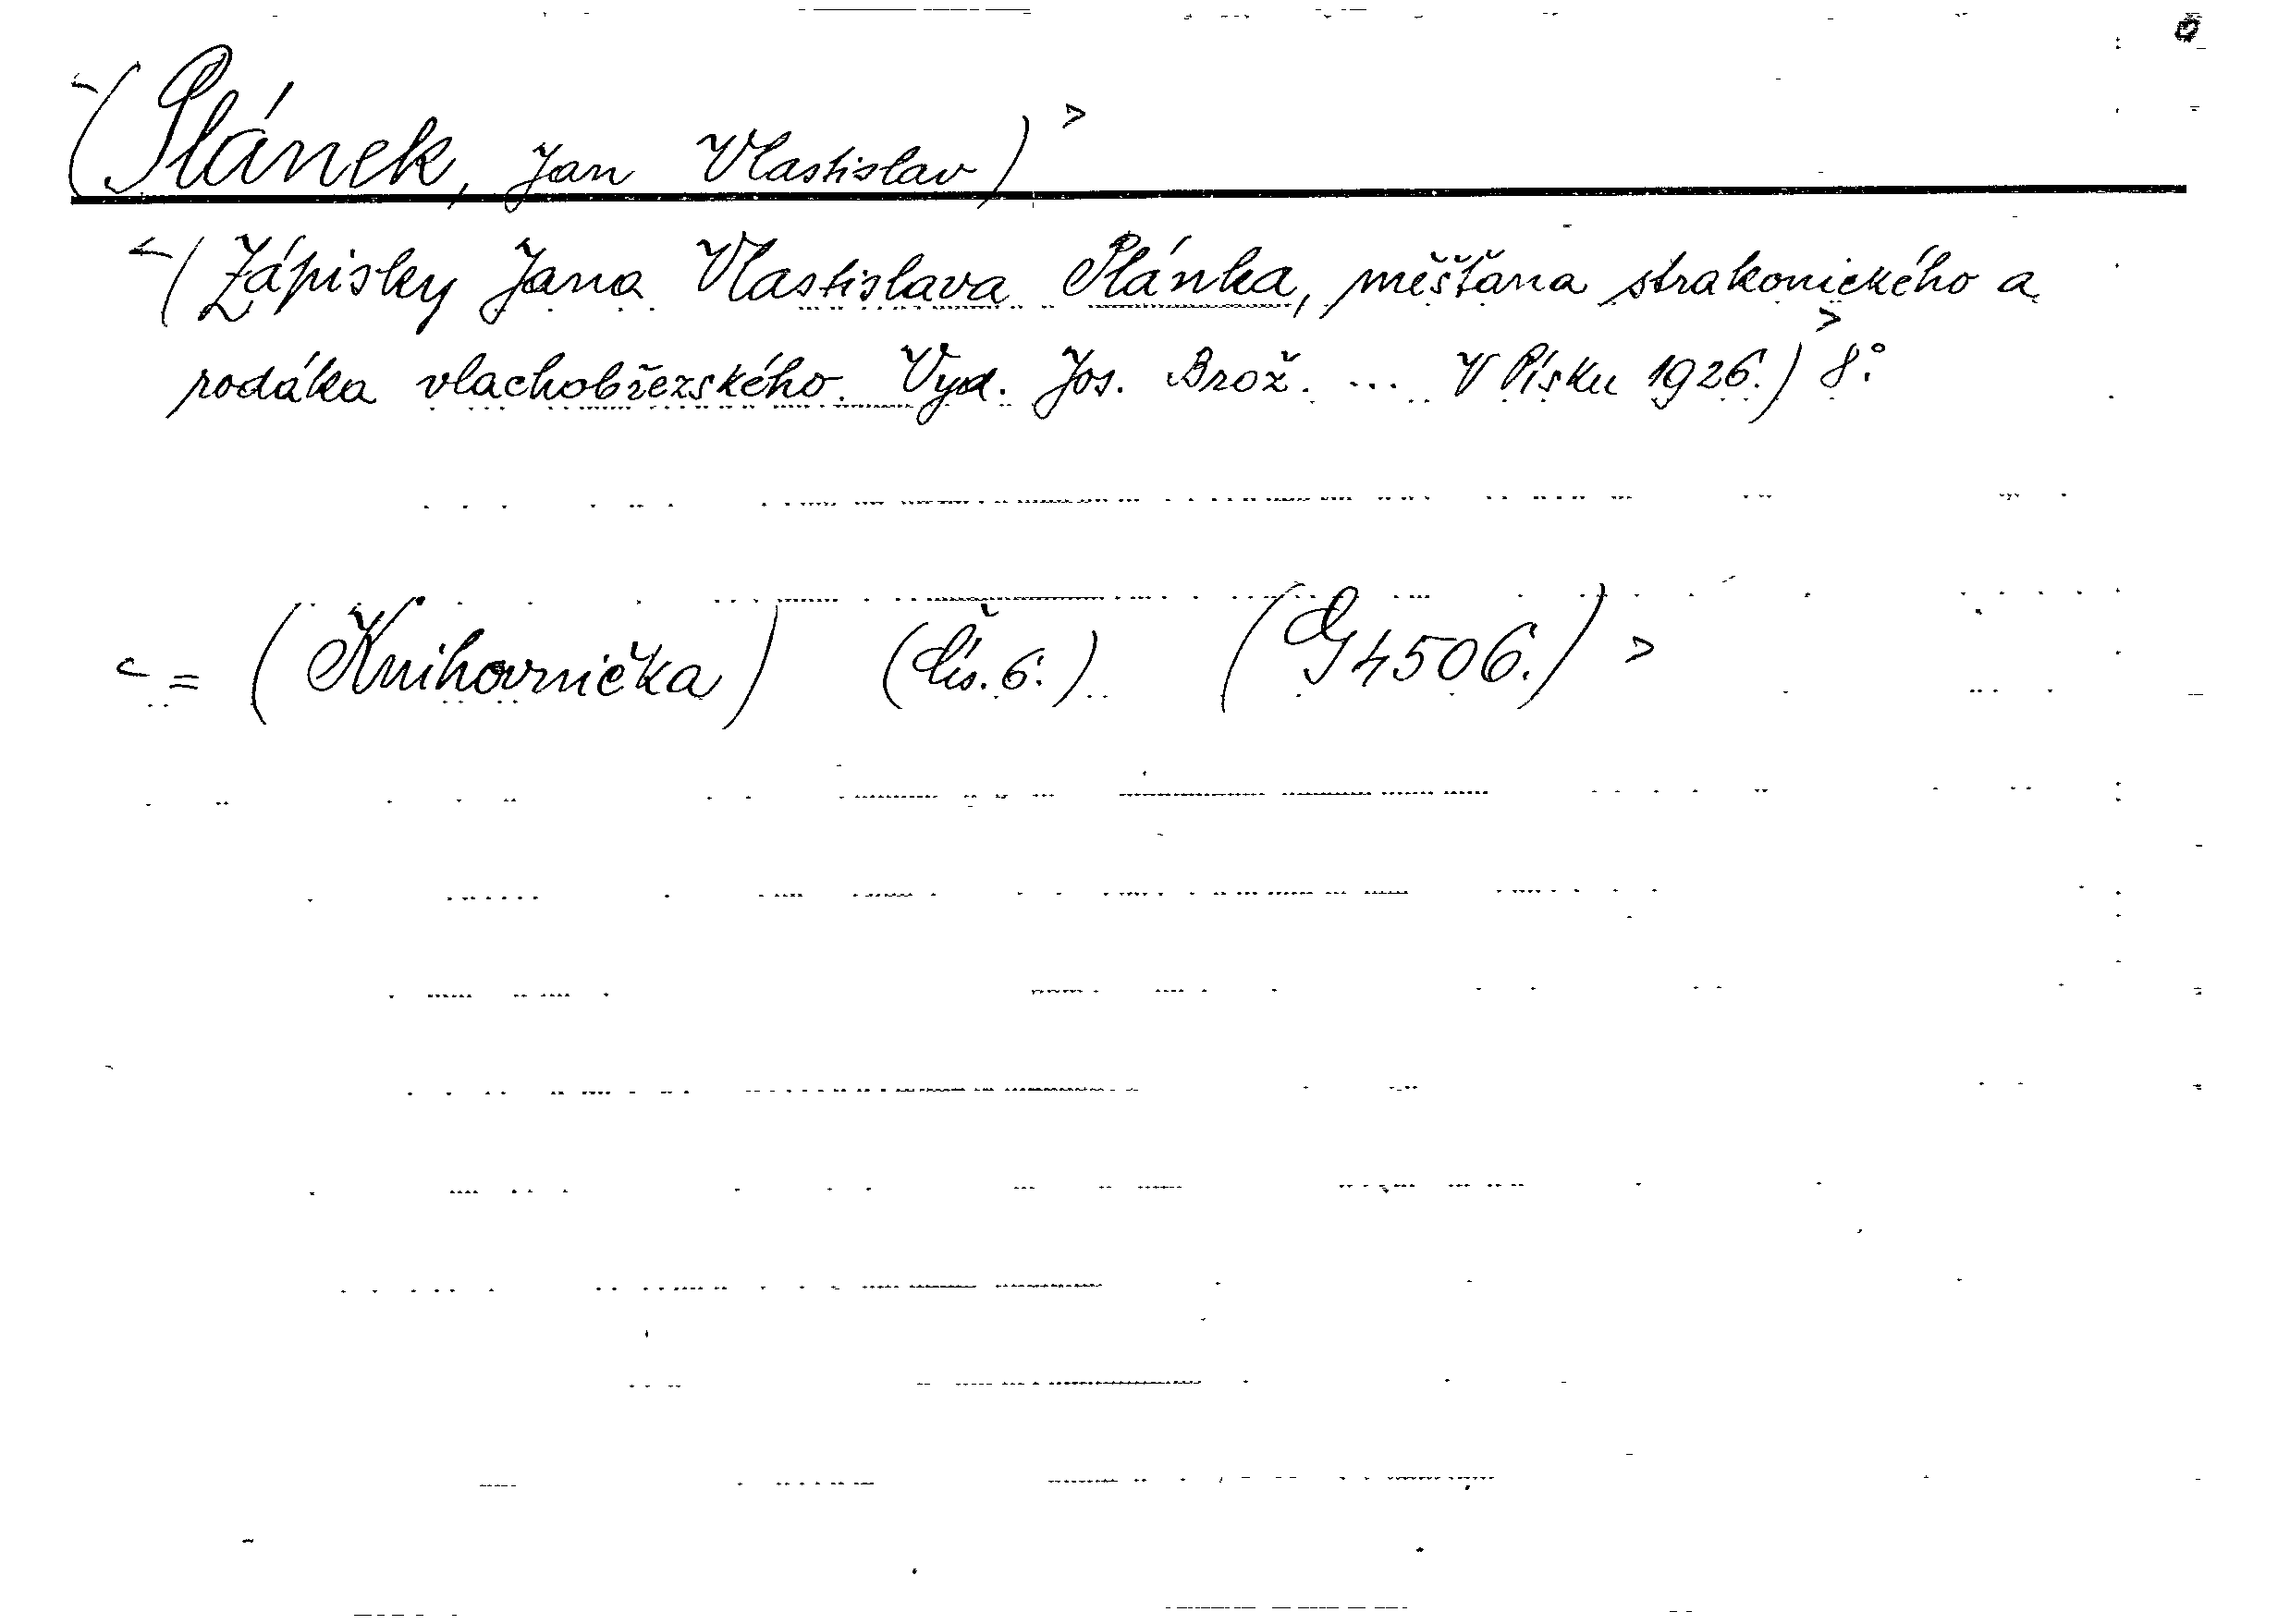 <(Plánek, Jan Vlastislav)>
<(Zápisky Jana Vlastislava Plánka, měšťana strakonického a
rodáka vlachobřezského. Vyd. Jos. Brož. ... V Písku 1926.)> 8°.
<= (Knihovnička) (čís. 6.) (G 4506.)>